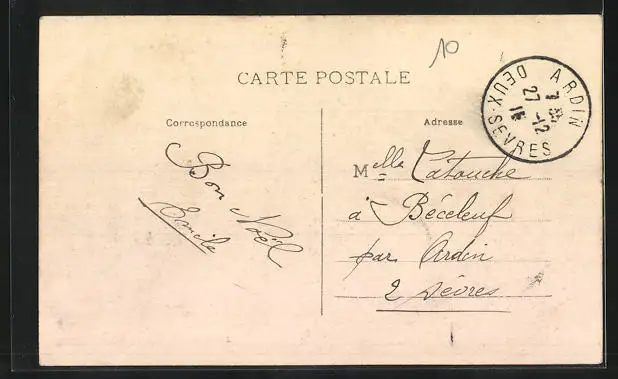 10
CARTE POSTALE
ARDIN
DEUX-SEVRES
27 -12
15
Correspondance
Adresse
Bon Noël
Emile
Melle Latouche
à Béceleuf
par Ardin
2 Sèvres